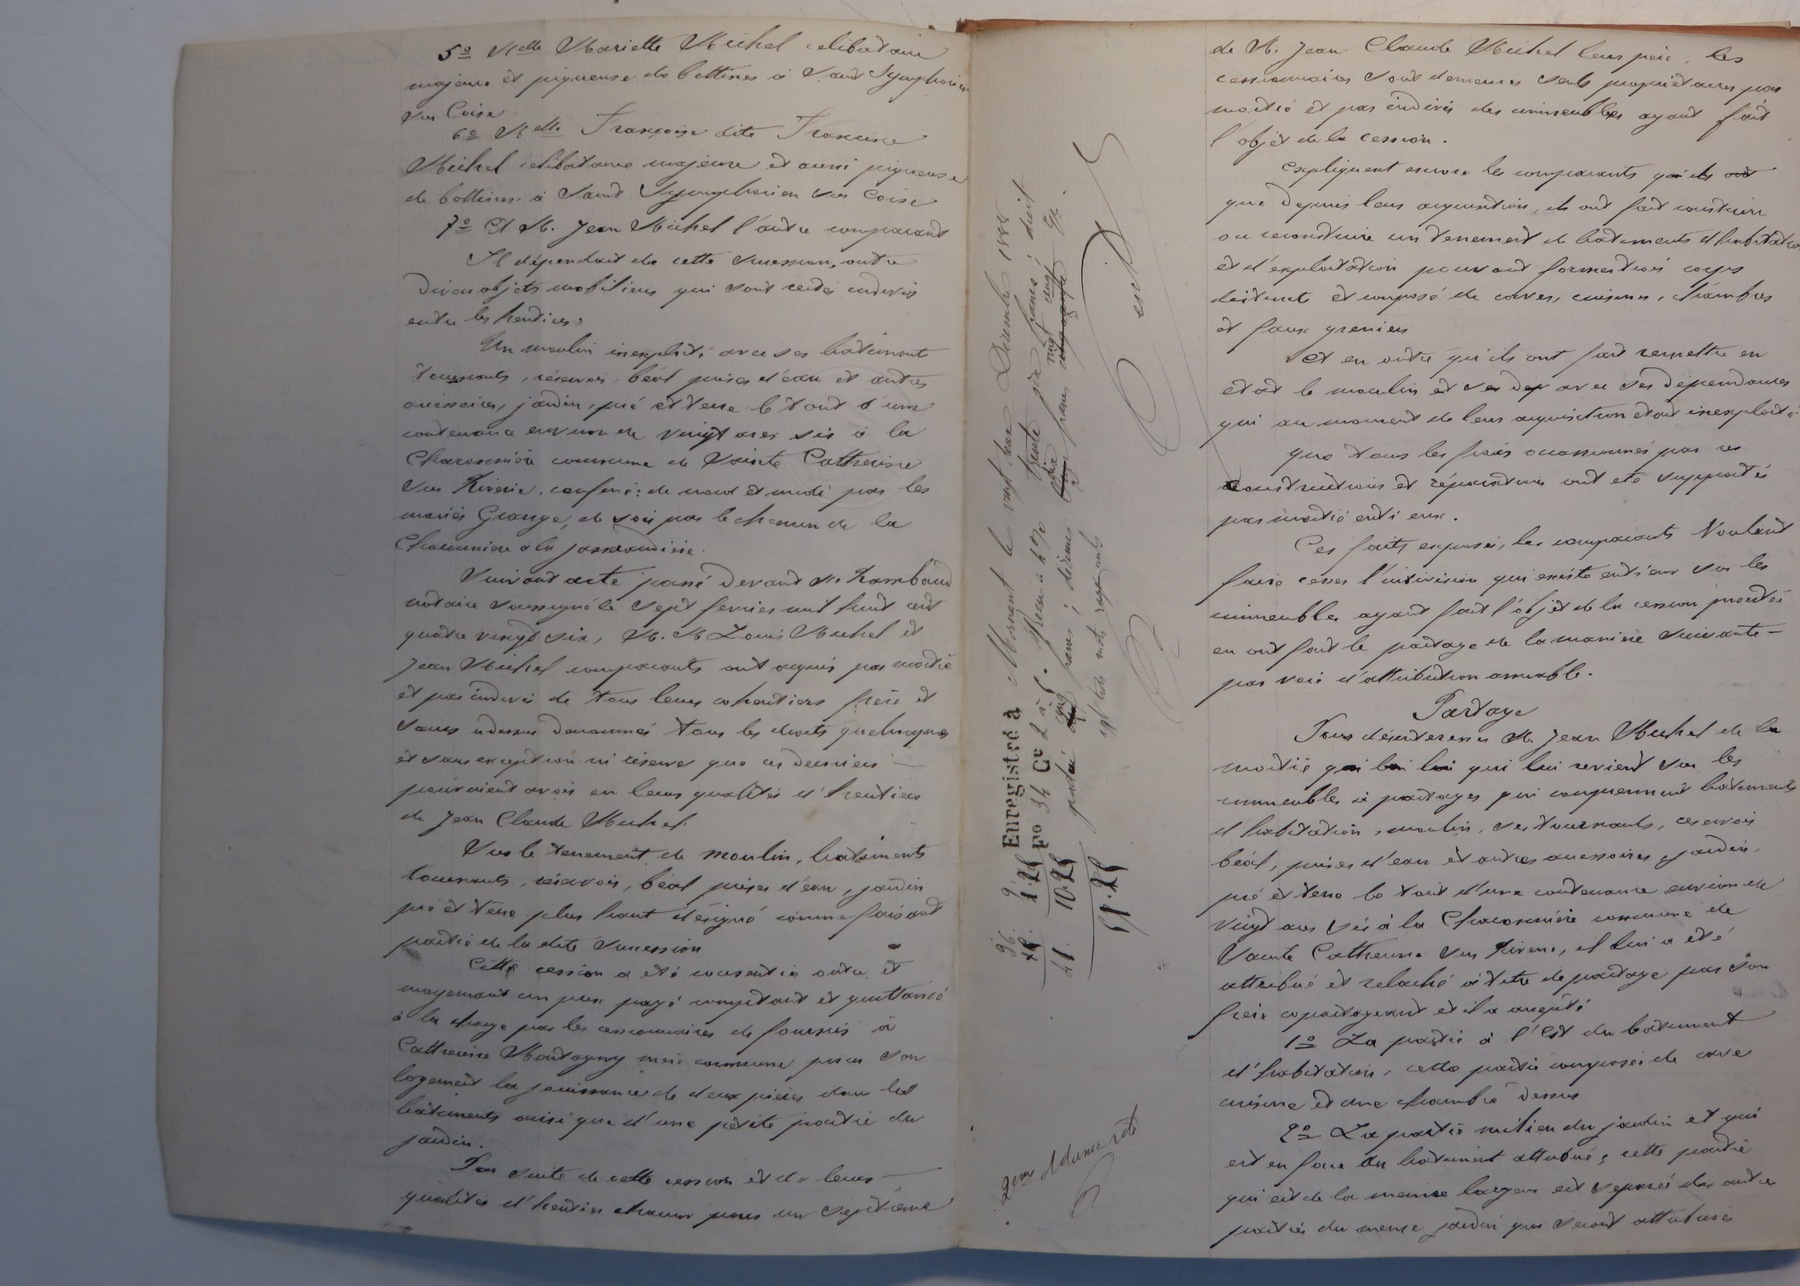 5º Melle Mariette Michel célibataire
majeure et piqueuse de bottines à Saint Symphorien
sur Coise
6º Melle Françoise dite Francine
Michel célibataire majeure et aussi piqueuse
de bottines à Saint Symphorien sur Coise
7º Et M. Jean Michel l'autre comparant
Il dépendait de cette succession, outre
divers objets mobiliers qui sont restés indivis
entre les héritiers,
Un moulin inexploité avec ses bâtiments
tournants, réservoir, béal prises d'eau et autres
accessoires, jardin, pré et terre le tout d'une
contenance environ de vingt ares sis à la
Chavonnière commune de Sainte Catherine
sur Riverie, confiné: de nord et midi par les
mariés Grange, de soir par le chemin de la
à la
Suivant acte passé devant Me Rambaud
notaire soussigné le sept février mil huit cent
quatre vingt six, M. M Louis Michel et
Jean Michel comparants ont acquis par moitié
et par indivis de tous leurs cohéritiers frère et
sœurs ci dessus dénommés tous les droits quelconques
et sans exception ni réserve que ces derniers
pouvaient avoir en leurs qualités d'héritiers
de Jean Claude Michel.
Sur le tenement de moulin, bâtiments
tournants, réservoir, béal prises d'eau, jardin
pré et terre plus haut désigné comme faisant
partie de la dite succession
Cette cession a été consentie outre et
moyennant un prix payé comptant et quittancé
à la charge par les cessionnaires de fournir à
Catherine Montagny mère commune pour son
logement la jouissance de deux pièces dans les
bâtiments ainsi que d'une petite partie du
jardin.
Par suite de cette cession et de leurs
qualités d'héritiers chacun pour un septième
Enregistré à Mornant le vingt deux Décembre 188
Fº 34 Cº 2 à 5. Reçu à trente six francs; droit
francs; décimes
mots rayés nuls
36. 9.
1.25
41. 10.25
51.25
de M. Jean Claude Michel leur père, les
cessionnaires sont demeurés seuls propriétaires par
moitié et par indivis des immeubles ayant fait
l'objet de la cession.
Expliquent encore les comparants
que depuis leur acquisition, ils ont fait construire
ou reconstruire un tenement de bâtiments d'habitation
et d'exploitation pouvant former trois corps
distincts et composé de caves, cuisines, chambres
et faux greniers
et en outre qu'ils ont fait remettre en
état le moulin et ses avec ses dépendances
qui au moment de leur acquisition était inexploité
que tous les frais occasionnés par ces
constructions et réparations ont été supportés
par moitié entr'eux.
Ces faits exposés, les comparants voulant
faire cesser l'indivision qui existe entr'eux sur les
immeubles ayant fait l'objet de la cession précitée
en ont fait le partage de la manière suivante
par voie d'attribution amiable.
Partage
Pour désintéresser M. Jean Michel de la
moitié qui lui revient sur les
immeubles à partager qui comprennent bâtiments
d'habitation, moulin, ses tournants, réservoir
béal, prises d'eau et autres accessoires, jardin,
pré et terre le tout d'une contenance environ de
vingt ares sis à la Chavonnière commune de
Sainte Catherine sur Riverie, il lui a été
attribué et relaché à titre de partage par son
frère copartageant et il a accepté
1º La partie à l'Est du bâtiment
d'habitation, cette partie composée de cave
cuisine et une chambre dessus
2º La partie milieu du jardin et qui
est en face du bâtiment attribué; cette partie
qui est de la même largeur est séparée des autres
parties du même jardin qui seront attribuées